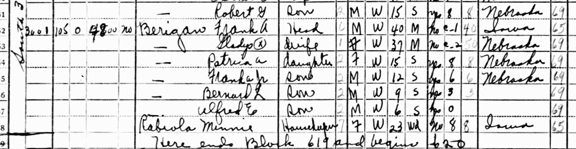 51 — Robert G Son M W 15 S yes 8 8 Nebraska 69
52 3001 105 O 4800 no Berigan Frank A Head M W 40 M no C-1 Iowa 65
53 — Gladys Wife F W 37 M no C-2 50 Nebraska 69
— Patricia A daughter F W 15 S yes 8 8 Nebraska 69
— Frank A Jr Son M W 12 S yes 6 6 Nebraska 69
— Bernard L Son M W 9 S yes 3 3 69
— Alfred E Son M W 6 S yes 0 69
Rabiola Minnie Housekeeper F W 23 Wd no 8 8 Iowa 65
Here ends Block 619 and begins 620
South 3